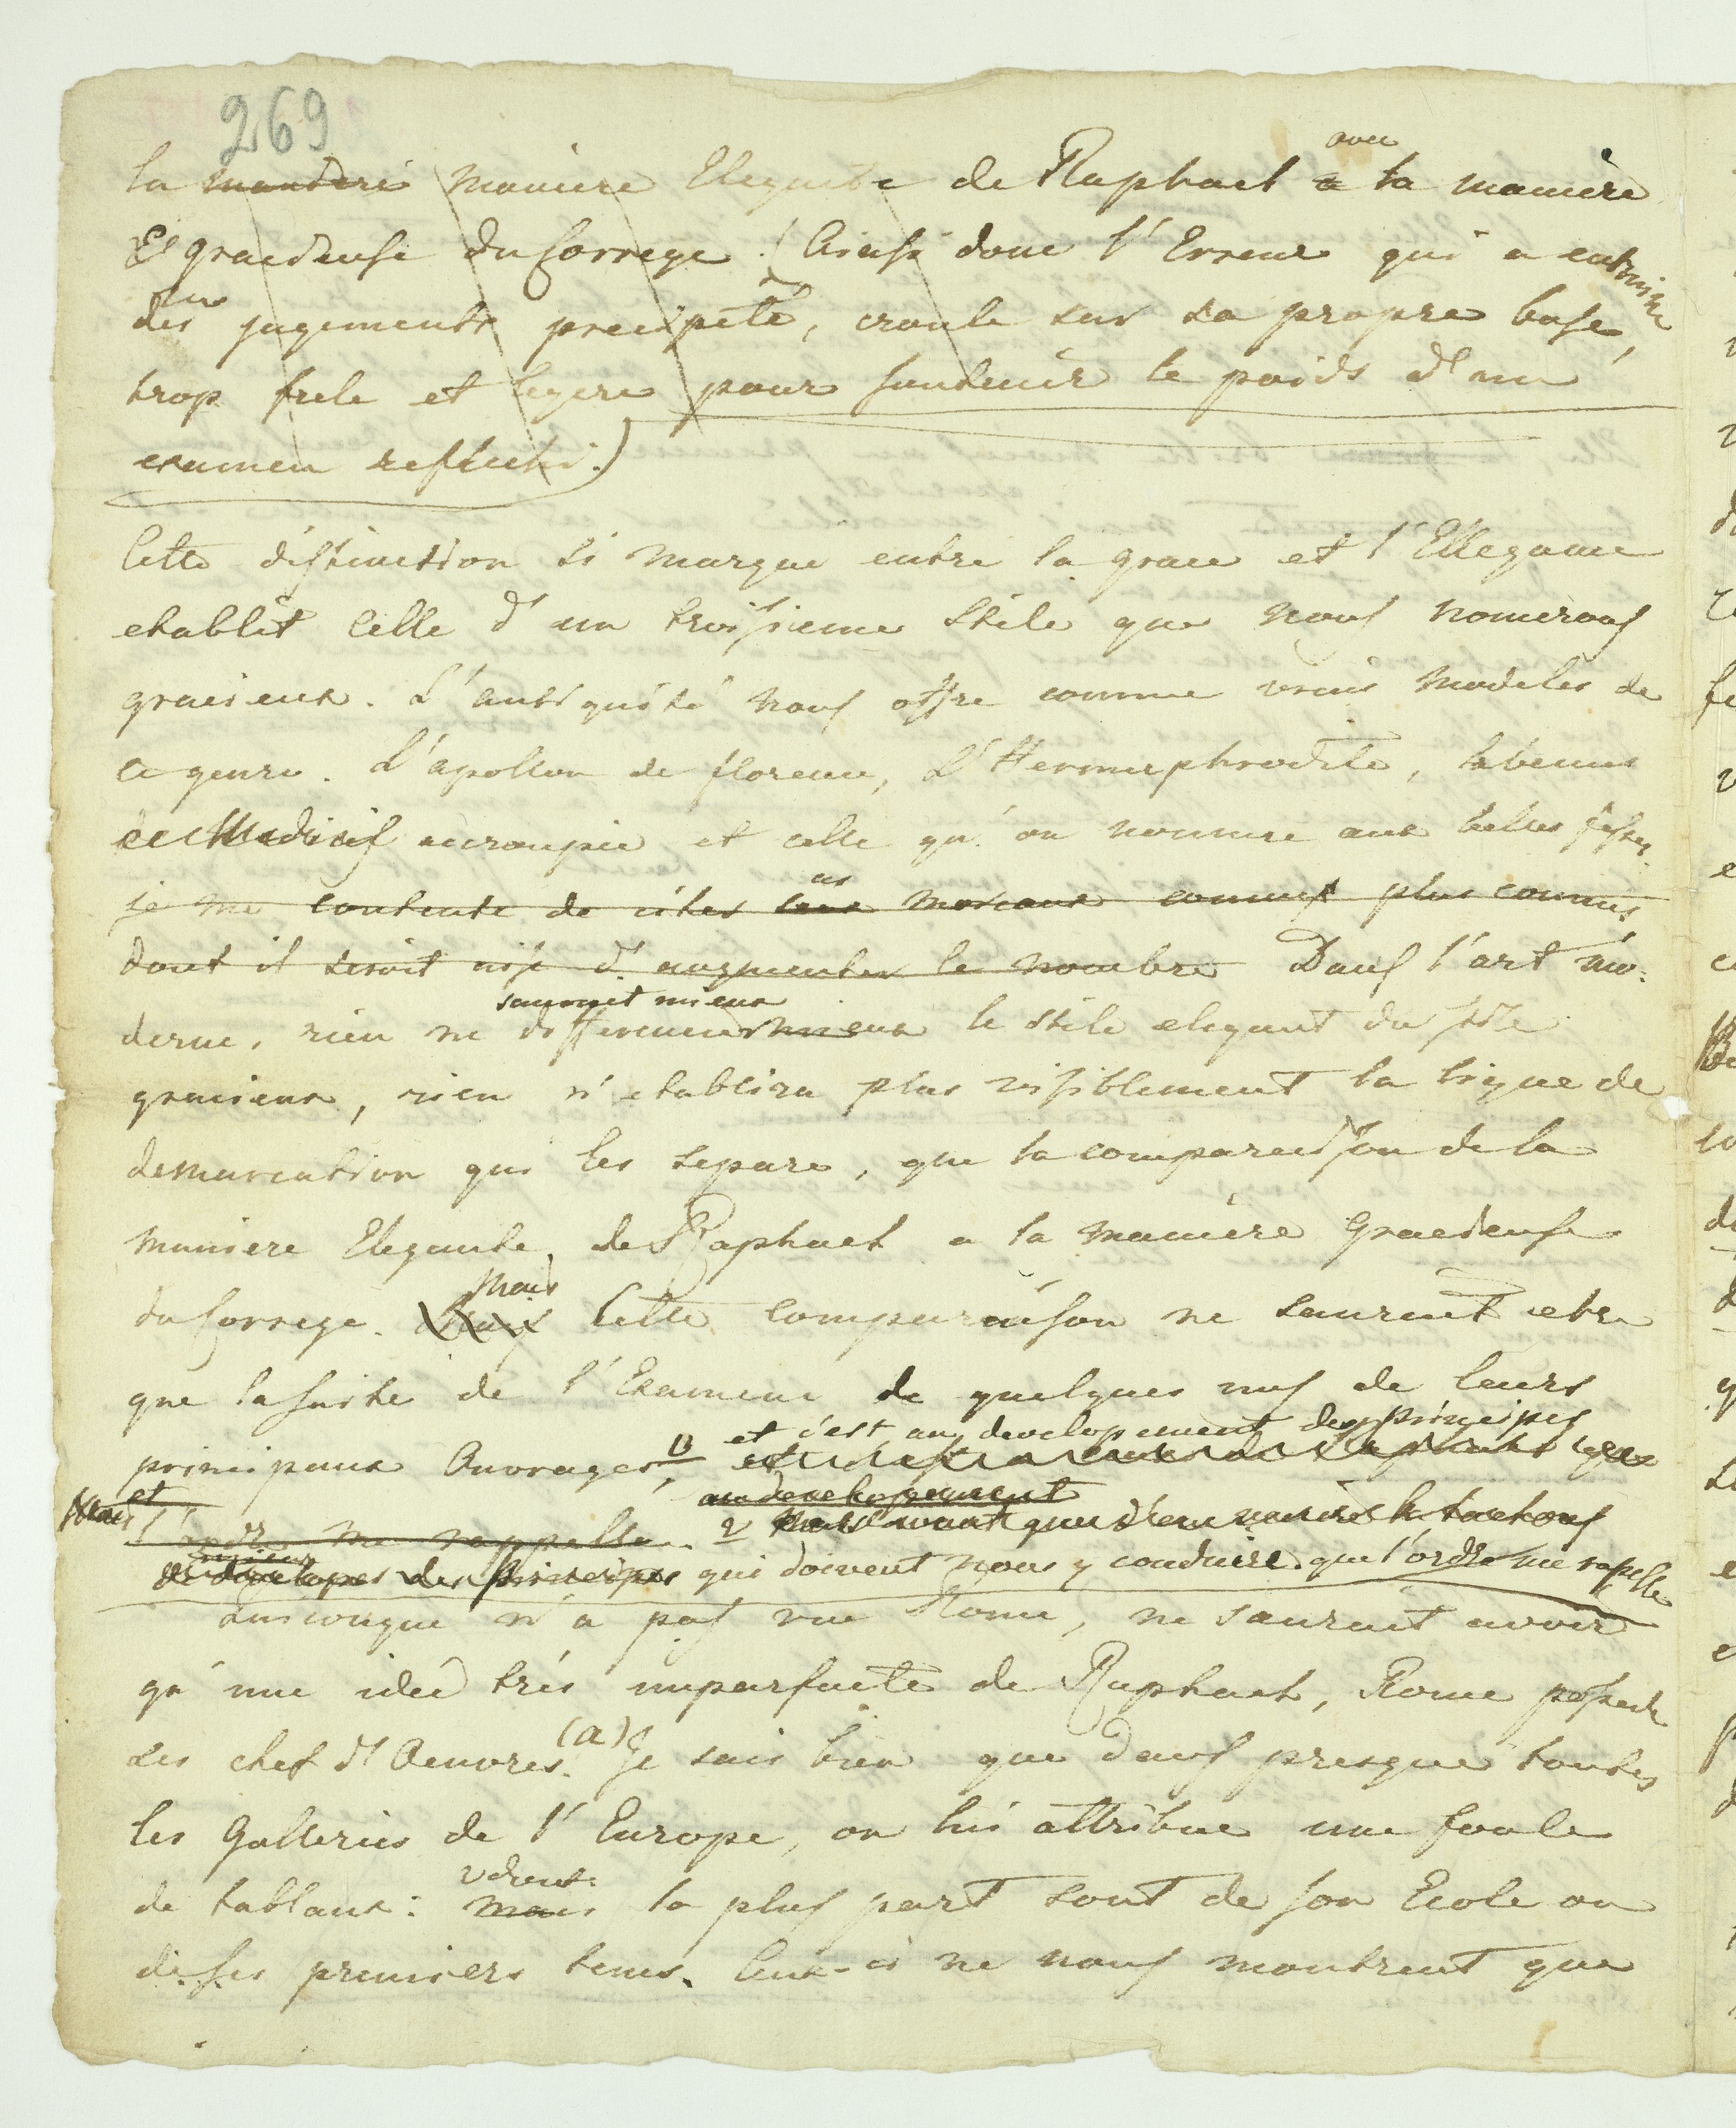 269
avec
la maniere Elegante de Raphael a la maniere
gracieuse du Correge. (Ainsi donc l'Erreur qui a entrainé
des jugements precipité, croule sur sa propre base,
trop frele et legere pour soutenir le poids d'un
examen reflechi.)
Cette distinction si marque entre la grace et l'Ellegance
etablit celle d'un troisieme Stile que nous nomerons
gracieux. L'antiquité nous offre comme vrais modeles de
ce genre. L'apollon de florence, L'Hermaphrodite, la venus
de Medicis accroupie et celle qu'on nomme aux belles fesses.
ces
je me contente de citer morceaux connus plus connus
dont il seroit aisé d'augmenter le nombre Dans l'art mo:
sauroit mieux
derne, rien ne differencier mieux le stile elegant du stile
gracieux, rien n'etablira plus visiblement la ligne de
demarcation qui les separe, que la comparaison de la
maniere Elegante, de Raphael a la maniere Gracieuse
Mais
du Correge. Cette comparaison ne sauroit etre
que la suite de l'Examene de quelques uns de leurs
et c'est au developement des principes
principaux Ouvrages,
au developement
et
l'ordre me rappelle.
developer des principes qui doivent nous y conduire que l'ordre me rapelle
Quiconque n'a pas vue Rome, ne sauroit avoir
qu'une idée très imparfaite de Raphael, Rome possede
ses chef d'Oeuvres. (a) Je sais bien que dans presque toutes
les Galleries de l'Europe, on lui attribue une foule
de tablaux: mais la plus part sont de son Ecole ou
de ses premiers tems. Ceux-ci ne nous montrent que